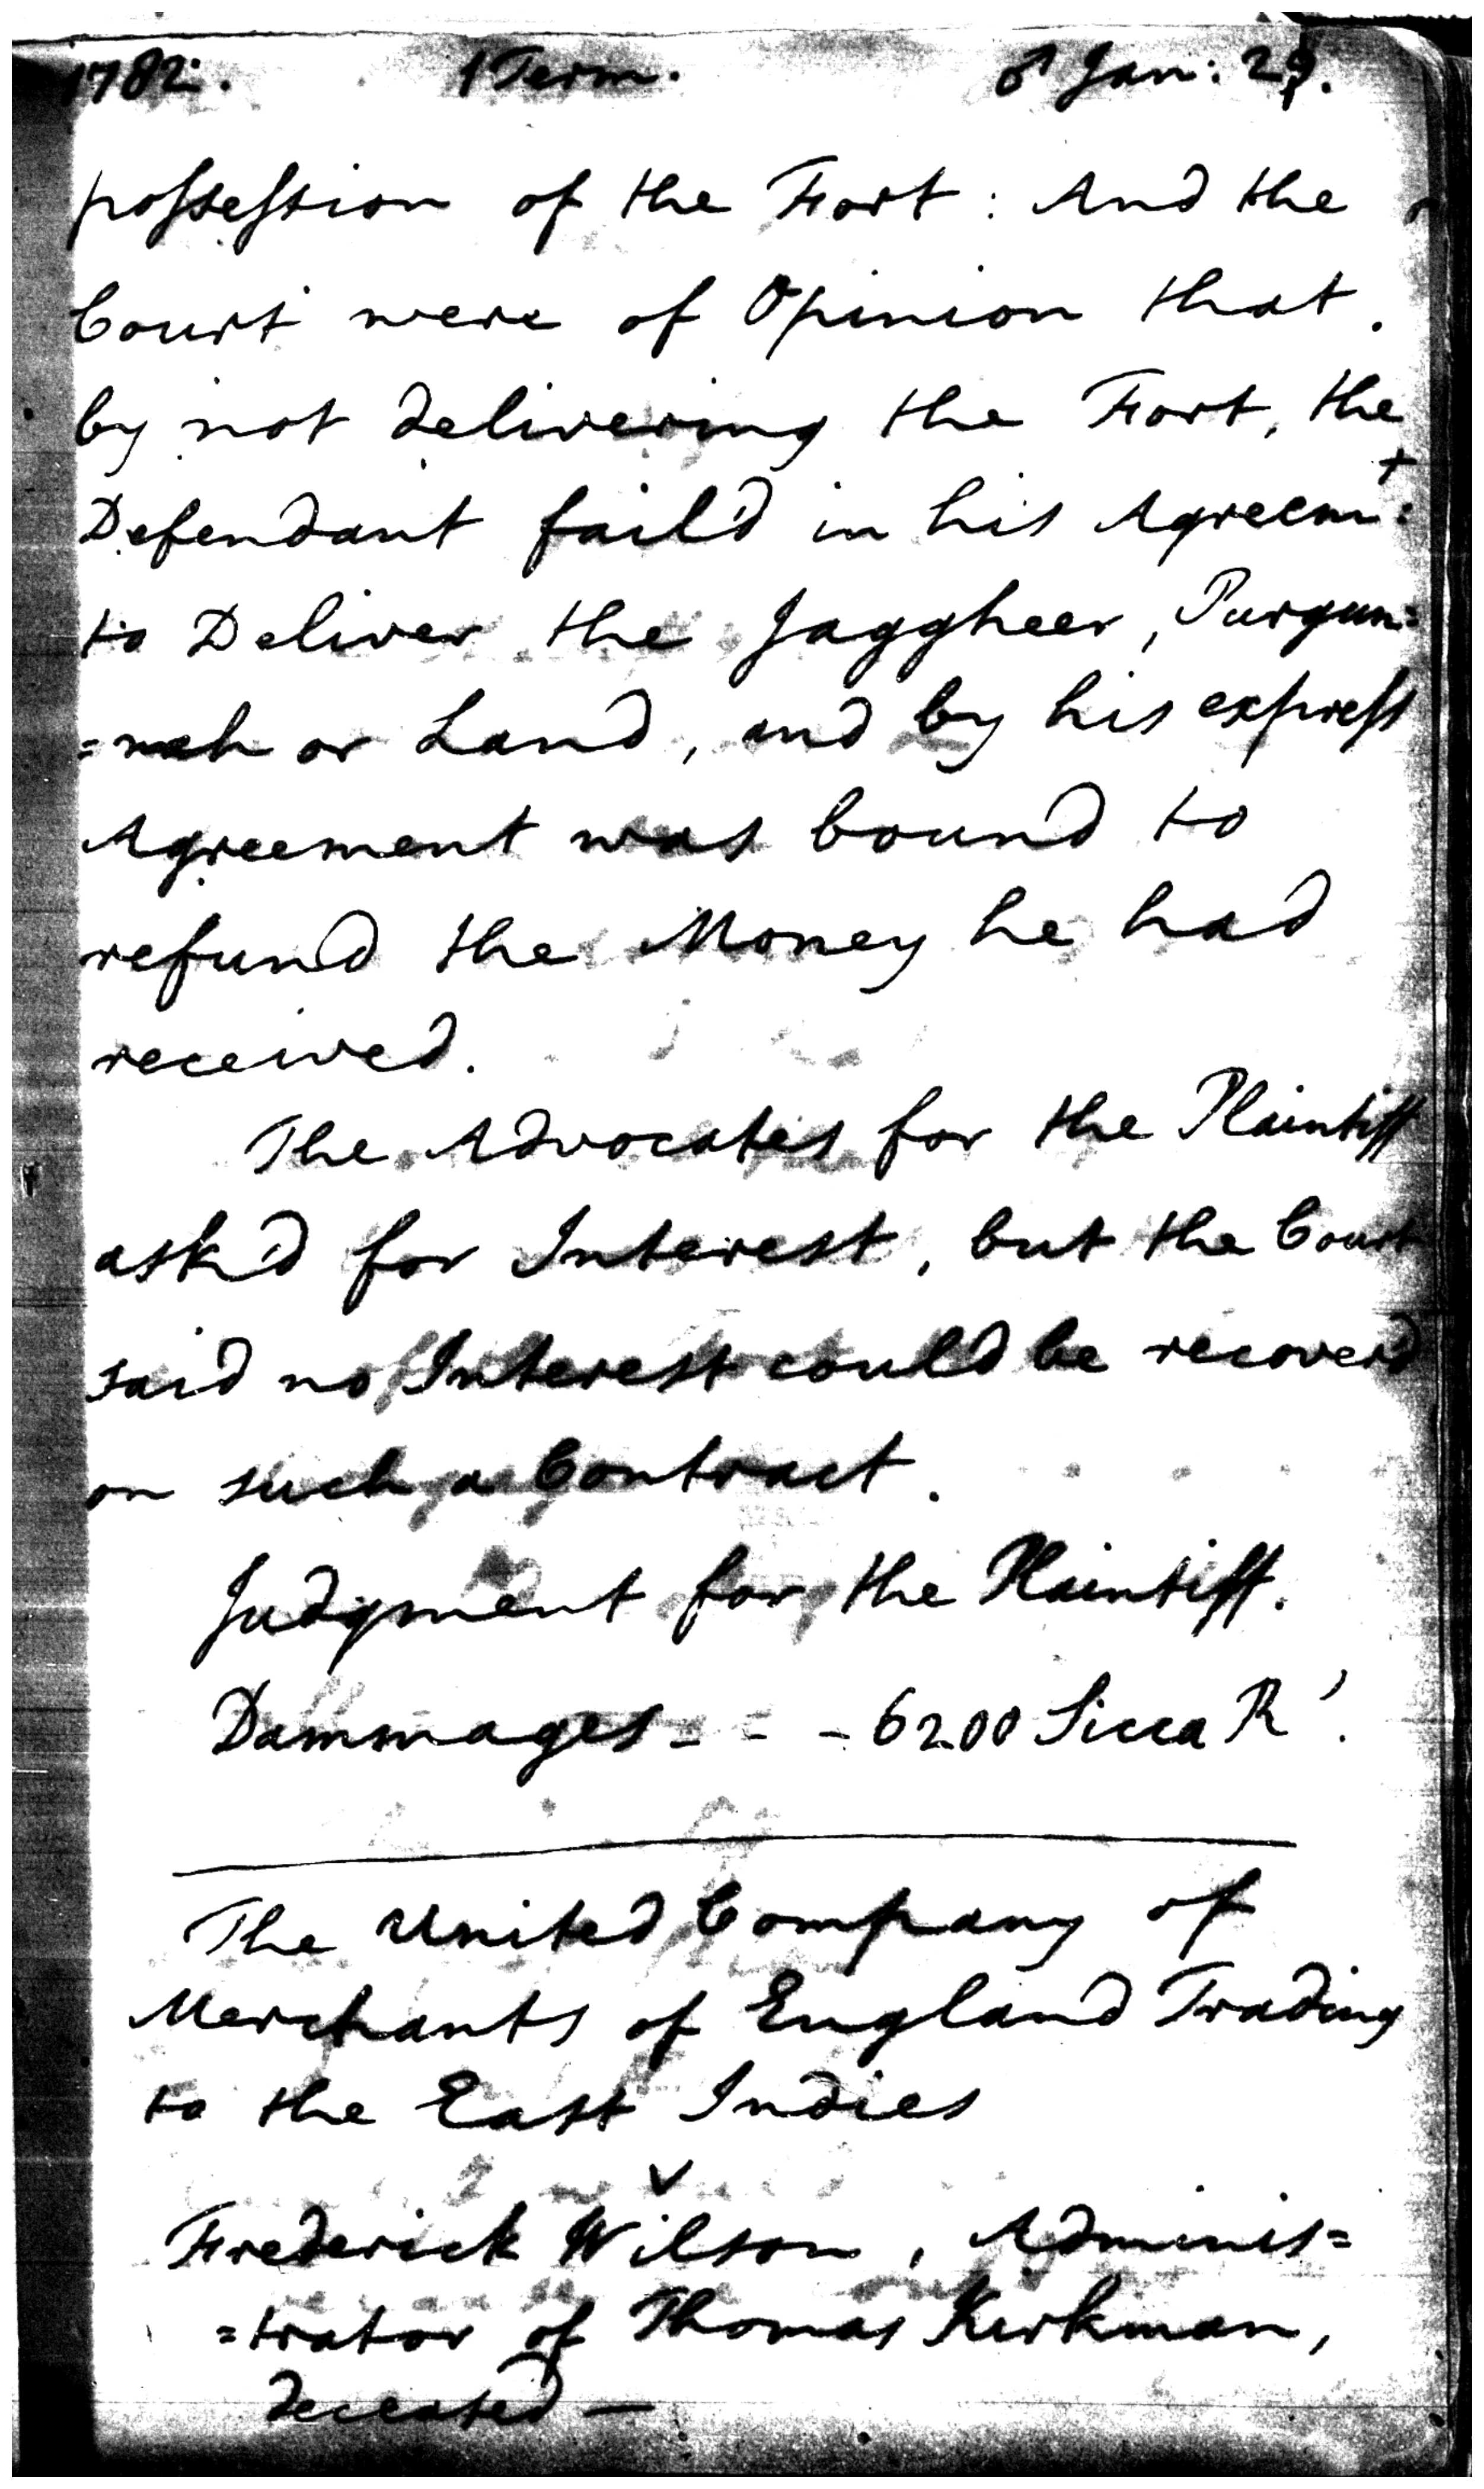 1782. 1 Term. ♂ Jan: 29.
possession of the Fort: And the
Court were of Opinion that.
by not delivering the Fort, the
Defendant fail'd in his Agreemt:
to Deliver the Jaggheer, Purgun=
=nah or Land, and by his express
Agreement was bound to
refund the Money he had
received.
The Advocates for the Plaintiff
ask'd for Interest, but the Court
said no Interest could be recoverd
on such a Contract.
Judgment for the Plaintiff.
Dammages - - - 6200 Sicca Rs.
The United Company of
Merchants of England Trading
to the East Indies
v
Frederick Wilson, Adminis=
=trator of Thomas Kirkman,
deceased —